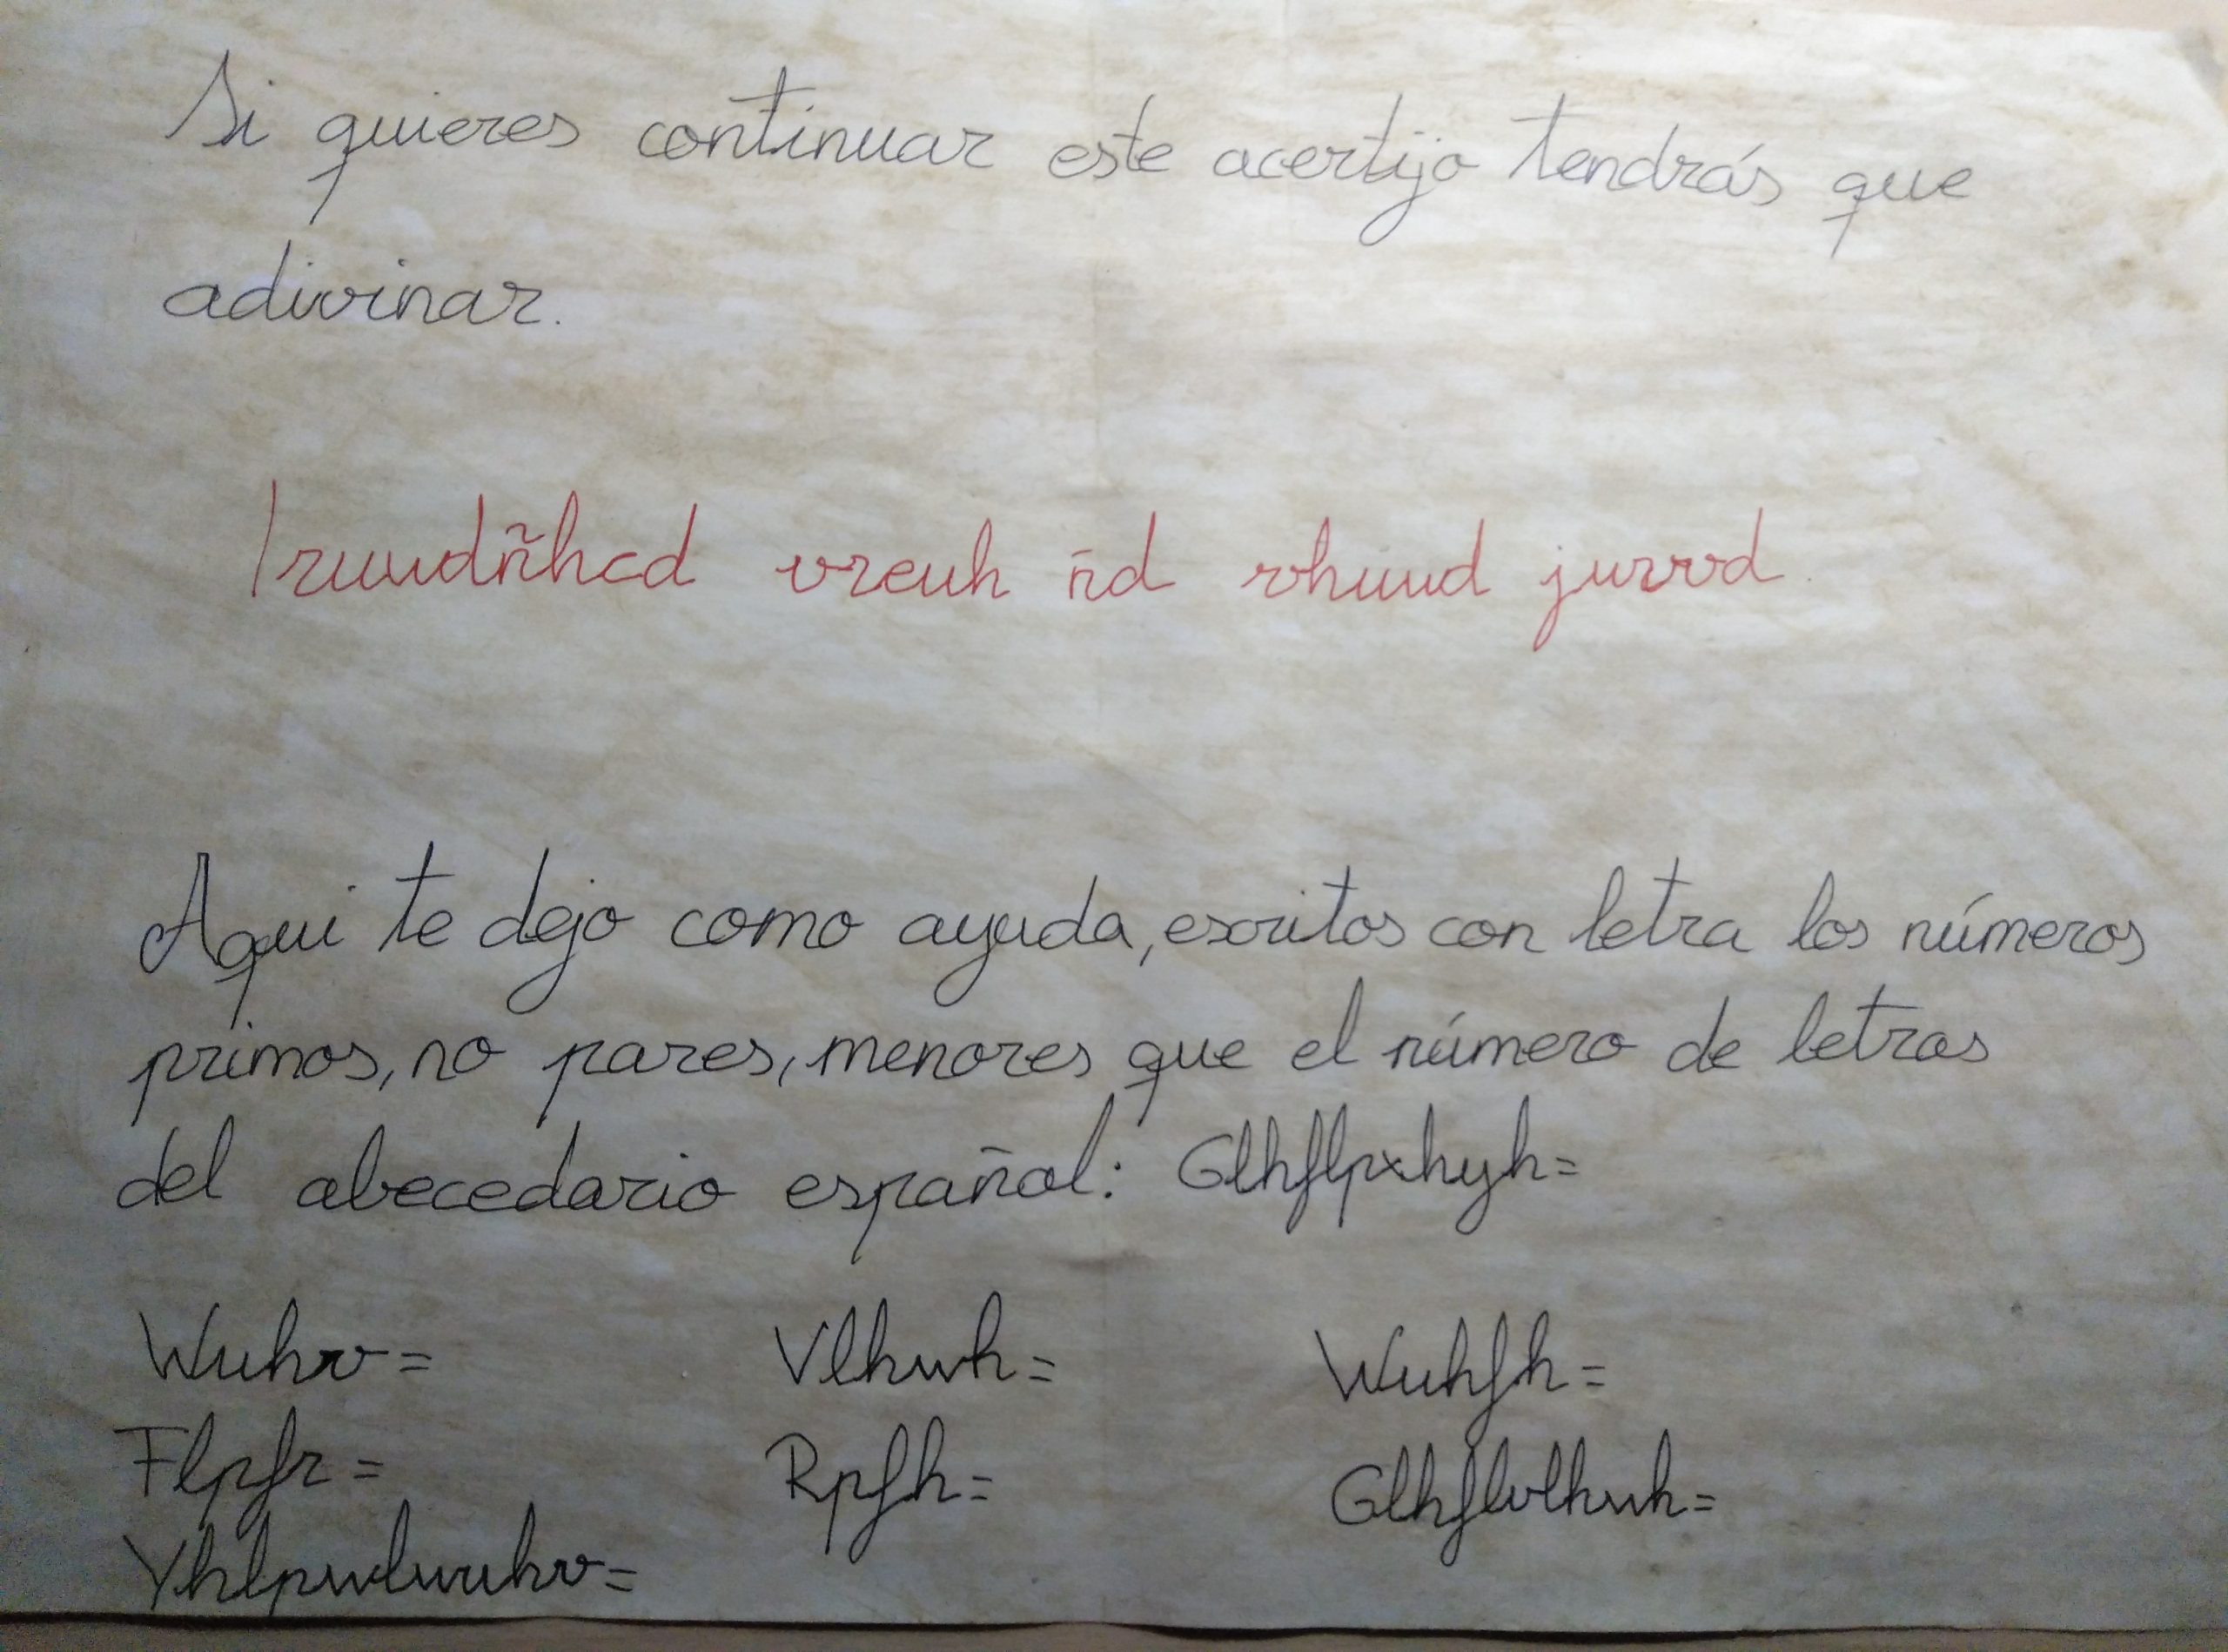 Si quieres continuar este acertijo tendrás que
adivinar.
Iruwdñhcd vreuh ñd vhuud jurvvd.
Aqui te dejo como ayuda, escritos con letra los números
primos, no pares, menores que el número de letras
del abecedario español: Glhflpxhyh=
Wuhv= Vlhwh= Wuhfh=
Flpfr= Rpfh= Glhflvlhwh=
Yhlpwlwuhv=